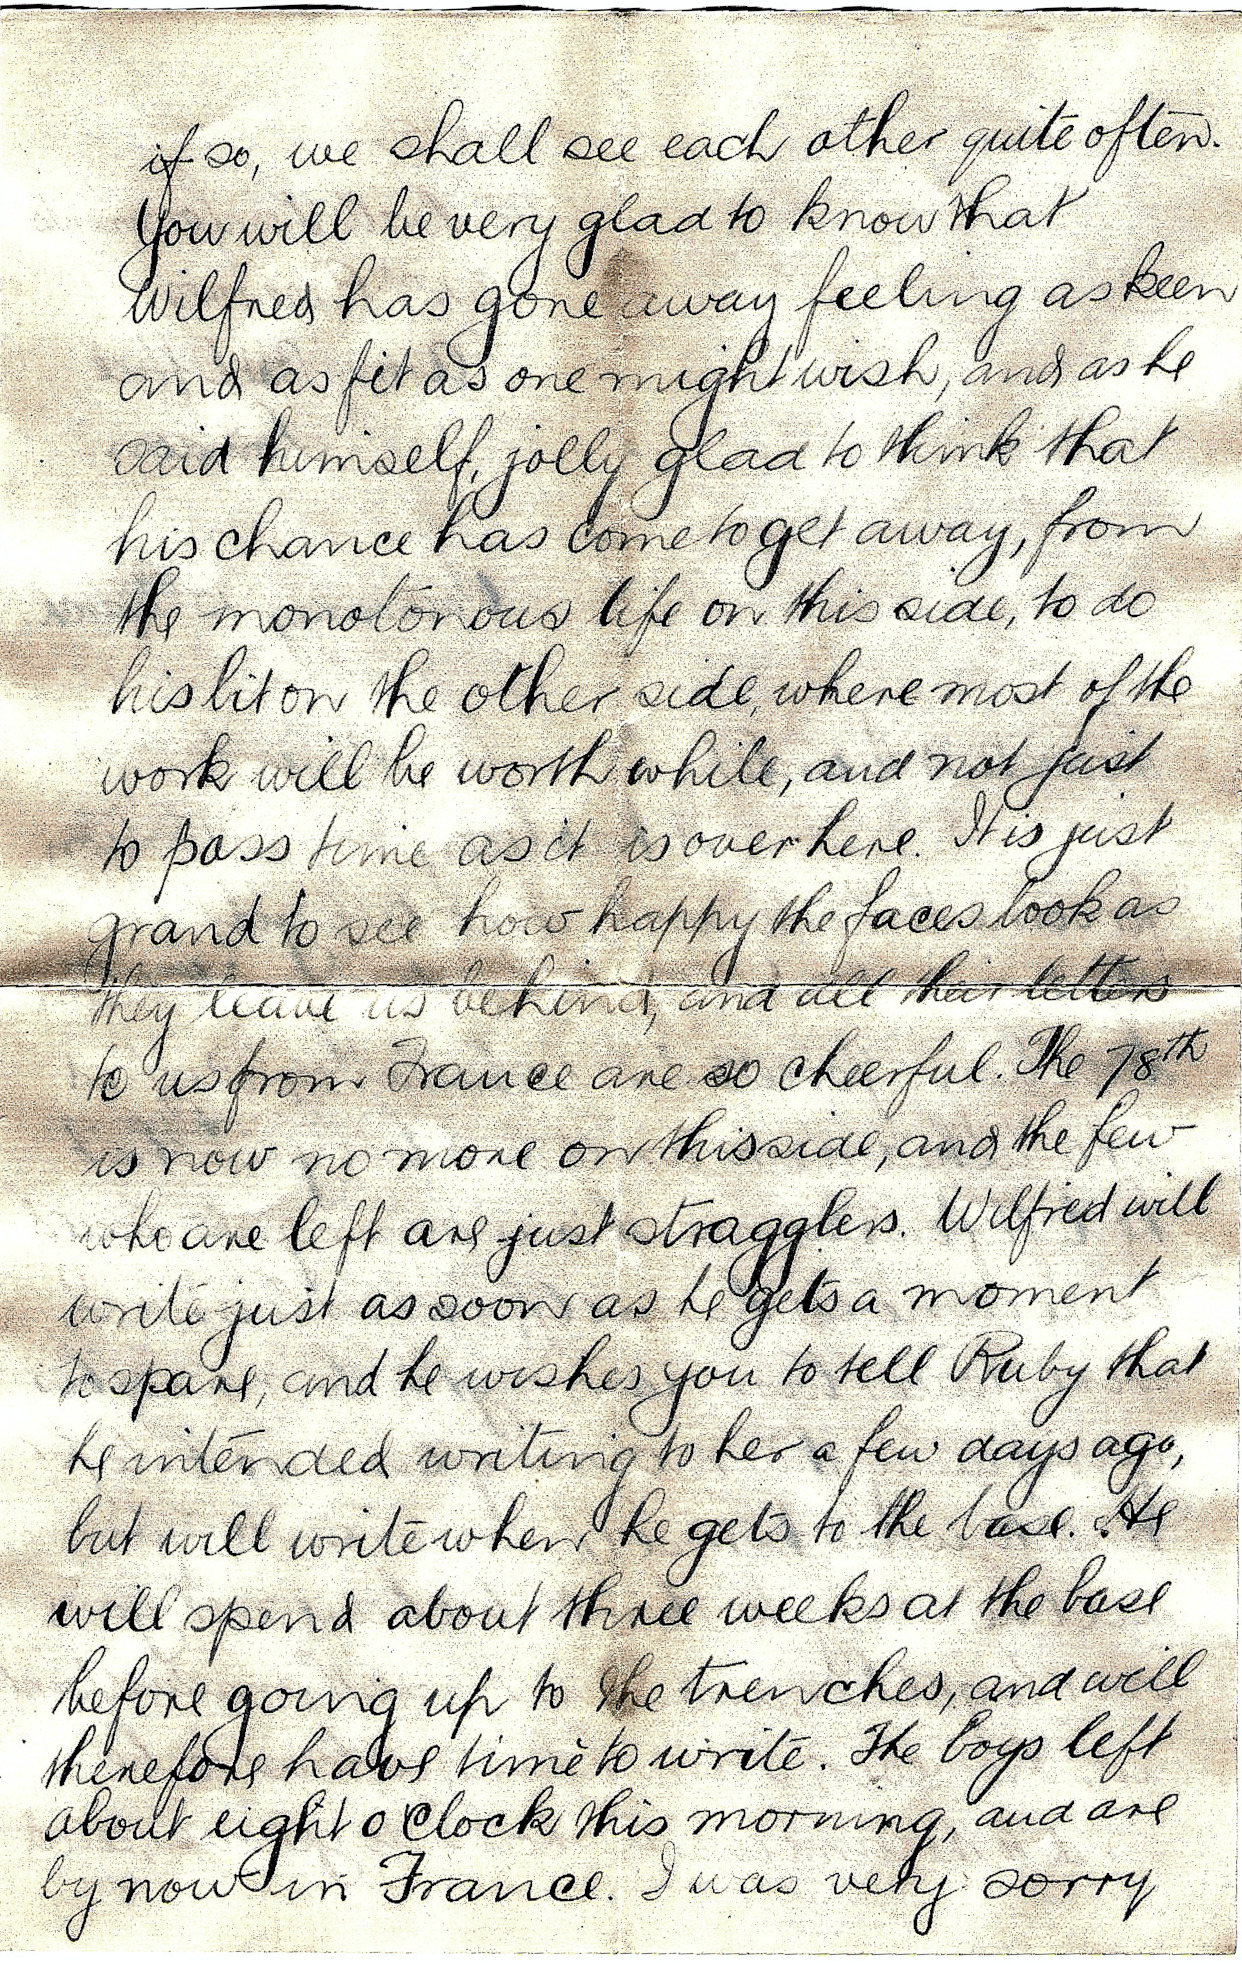 if so, we shall see each other quite often.
You will be very glad to know that
Wilfred has gone away feeling as keen
and as fit as one might wish, and as he
said himself, jolly glad to think that
his chance has come to get away, from
the monotonous life on this side, to do
his bit on the other side, where most of the
work will be worth while, and not just
to pass time as it is over here. It is just
grand to see how happy the faces look as
they leave us behind, and all their letters
to us from France are so cheerful. The 78th
is now no more on this side, and the few
who are left are just stragglers. Wilfred will
write just as soon as he gets a moment
to spare, and he wishes you to tell Ruby that
he intended writing to her a few days ago,
but will write when he gets to the base. He
will spend about three weeks at the base
before going up to the trenches, and will
therefore have time to write. The boys left
about eight o Clock this morning, and are
by now in France. I was very sorry